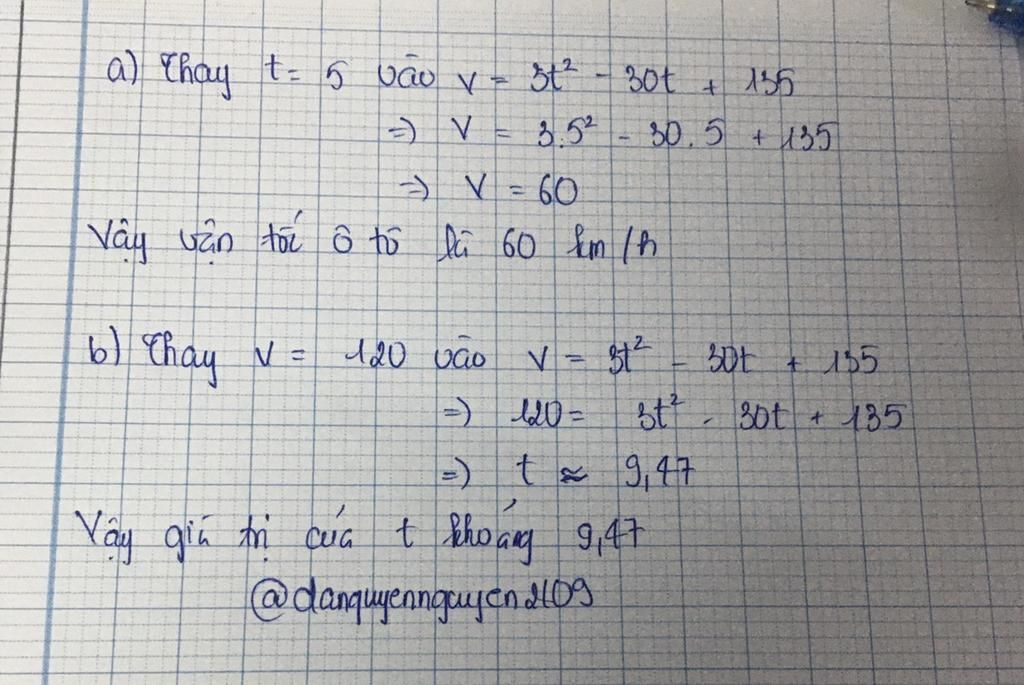 a) Thay t = 5 vào v = 3t² - 30t + 135
=) V = 3.5² - 30.5 + 135
=) V = 60
Vậy vận tốc ô tô là 60 km/h
b) Thay V = 120 vào V = 3t² - 30t + 135
=) 120 = 3t² - 30t + 135
=) t ≈ 9,47
Vậy giá trị của t khoảng 9,47
@danquyennguyen2109